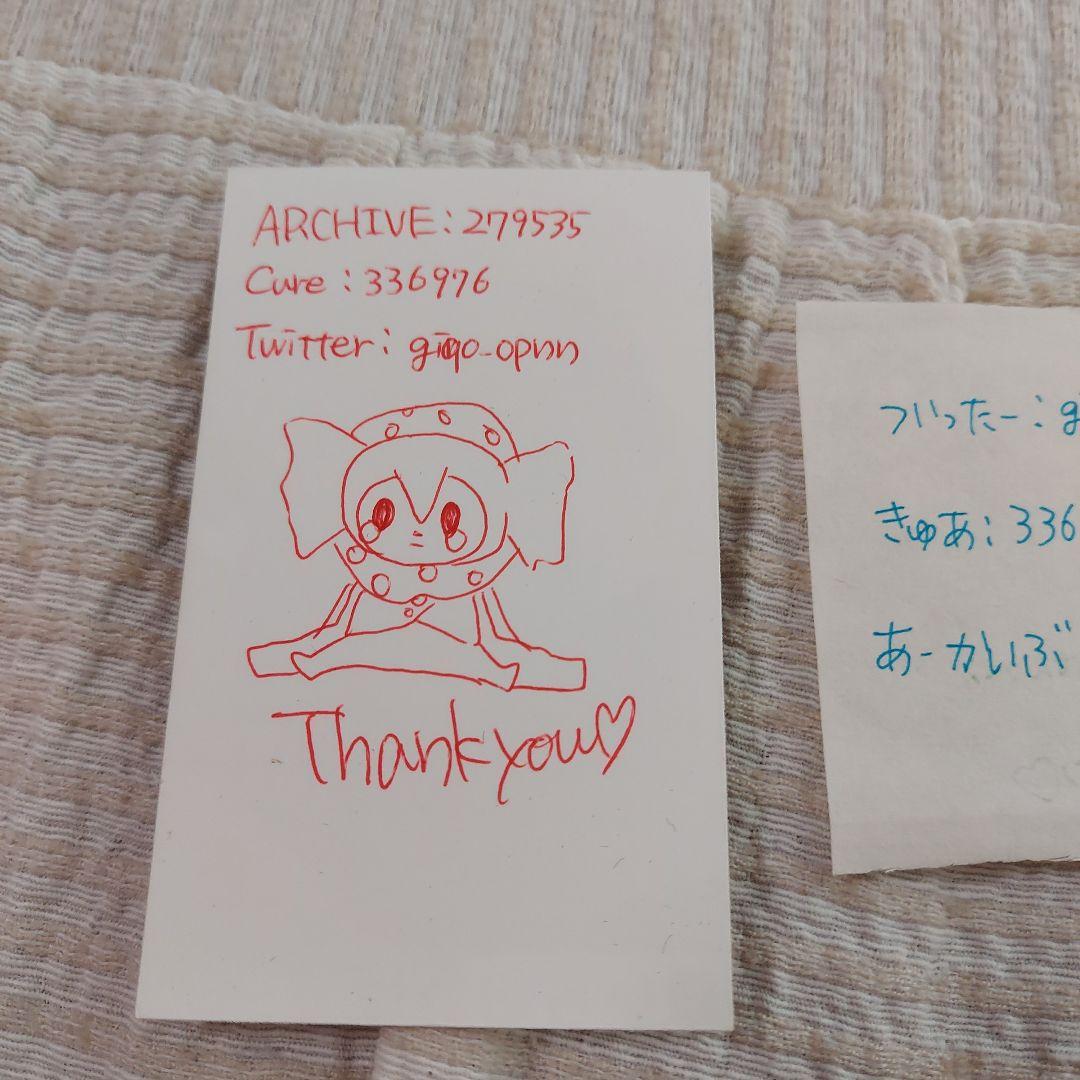 ARCHIVE: 279535
Cure: 336976
Twitter: giqo_opnn
Thank you♡
ついったー: g
きゅあ: 336
あーかいぶ